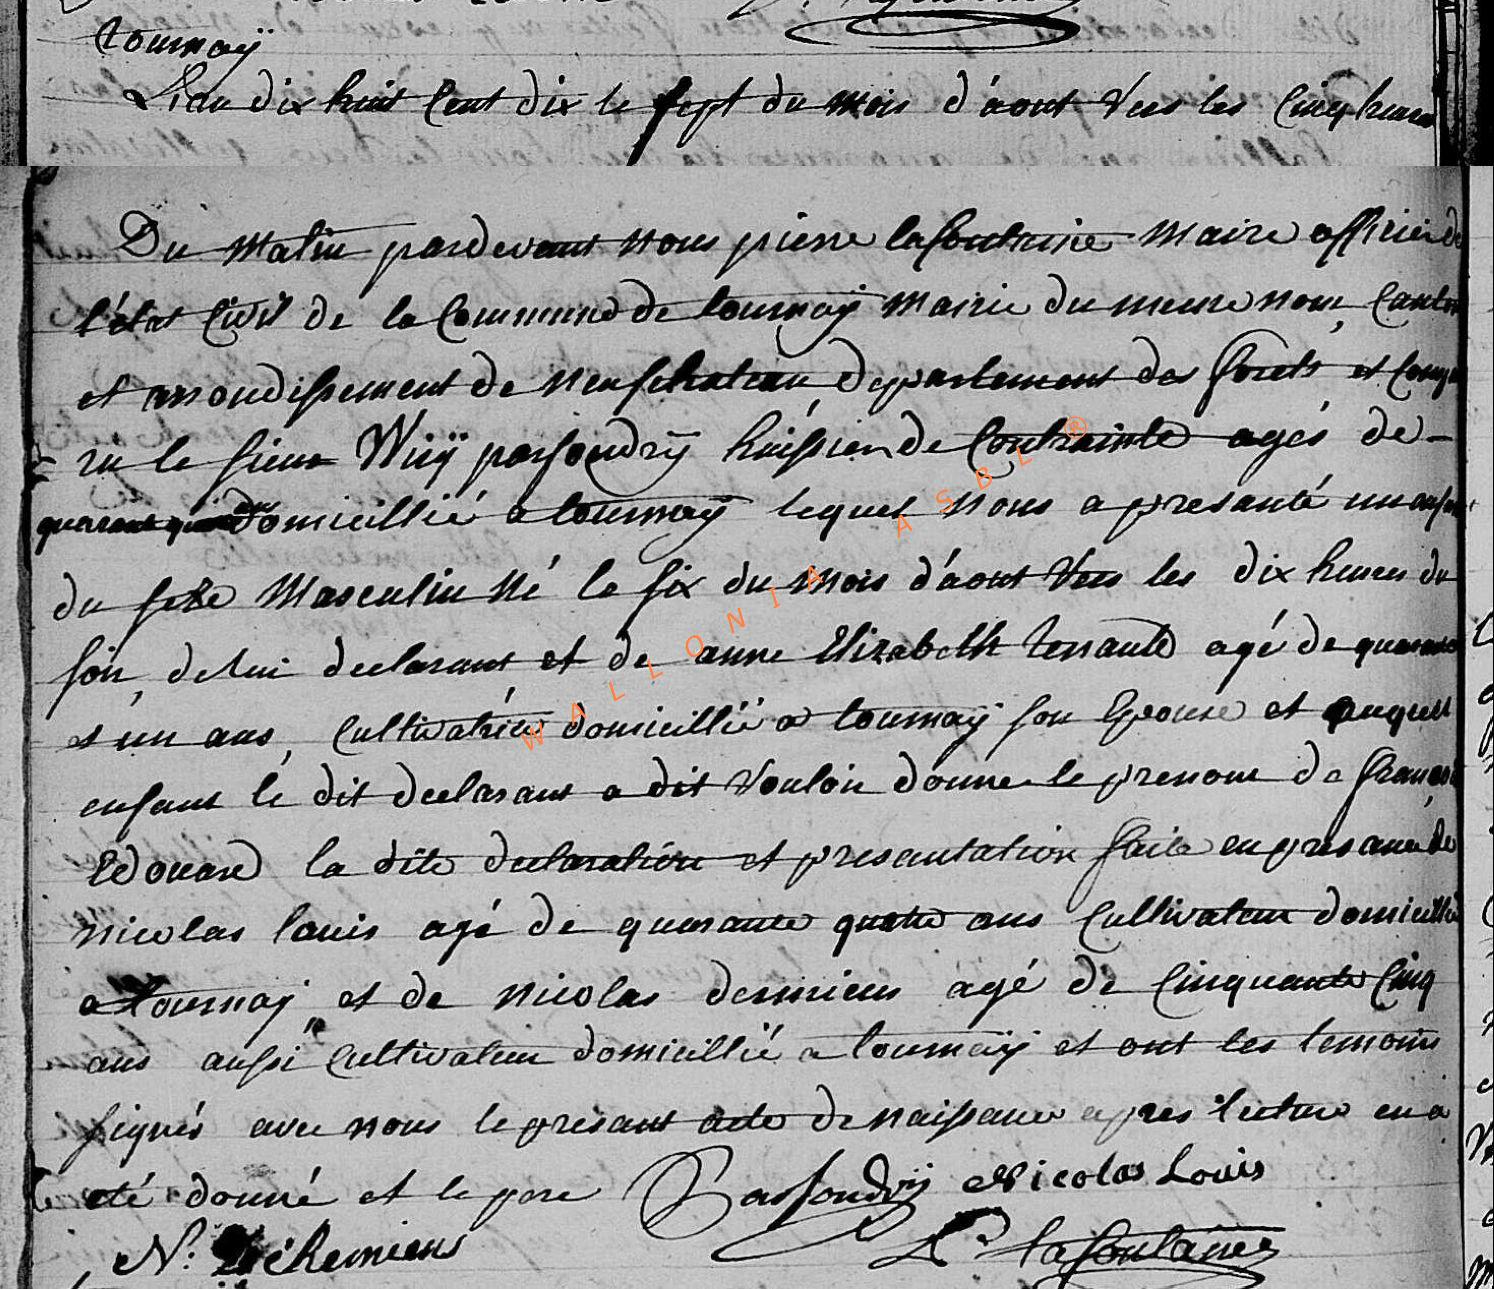 tournaÿ
L'an dix huit Cent dix le sept du mois d'aout Vers les Cinq heures
Du Matin pardevant nous pierre lafontaine Maire officier de
l'état Civil de la Commune de tournaÿ Mairie du meme nom, Canton
et arrondissement de neufchateau departement des forets et Compa
ru le sieur parfondrÿ huissier de Contrainte agés de -
quarante domicillié a tournaÿ lequel nous a presanté un enfant
du sexe Masculin né le six du mois d'aout Vers les dix heures du
soir, de lui declarant et de anne Elizabeth agé de quarante
et un ans, Cultivatrice domicillié a tournaÿ son Epouse et auquel
enfant le dit declarant a dit Vouloir donner le prenom de françois
Edouard la dite declaration et presantation faite en presance de
nicolas louis agé de quarante quatre ans Cultivateur domicillié
a tournaÿ et de nicolas agé de Cinquante Cinq
ans aussi Cultivateur domicillié a tournaÿ et ont les temoins
signés avec nous le presant acte de naissance apres lecture en a
eté donné et le pere Parfondrÿ Nicolas Louis
N. lafontaine
WALLONIA ASBL ®